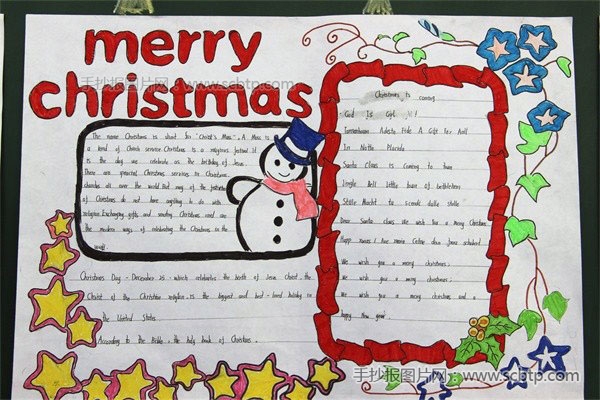 merry
christmas
手抄报图片网:www.scbtp.com
The name Christmas is short for "Christ's Mass". A Mass is
a kind of Church service Christmas is a religious festival It
is the day we celebrate as the birthday of Jesus.
There are special Christmas services in Christian
churches all over the world But many of the festivities
of Christmas do not have anything to do with
religion Exchanging gifts and sending Christmas cards are
the modern ways of celebrating the Christmas in the
world.
Christmas Day - December 25 - which celebrates the birth of Jesus Christ, the
Christ of the Christian religion, is the biggest and best - loved holiday in
the United States
According to the Bible, the holy book of Christians,
Christmas is coming
God Is
Adeste A Gift for All
In Notte Placida
Santa Claus is coming to town
Jingle Bell little town of bethlehem
Stille Nacht tu scendi dalle stelle
Dear Santa claus We wish you a merry Christmas
We wish you a merry christmas;
We wish you a merry christmas;
We wish you a merry christmas and a
happy New year!
手抄报图片网:www.scbtp.com